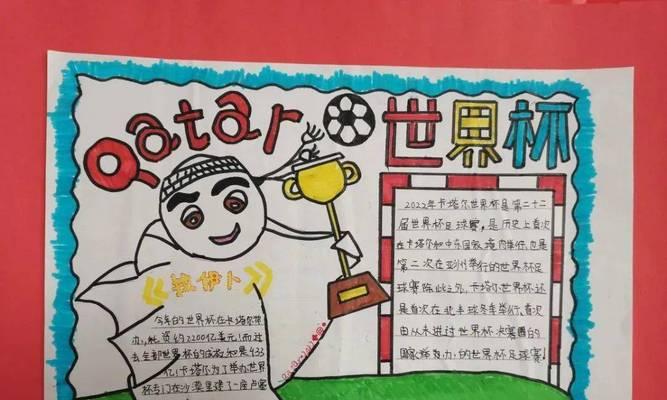 Qatar 世界杯
《拉伊卜》
今年的世界杯在卡塔尔举
办,耗资约2200亿美元!而过
去全部世界杯的
亿!卡塔尔为了举办世界
杯专门在沙漠里建了一座卢塞
2022年卡塔尔世界杯是第二十二
届世界杯足球赛,是历史上首次
在卡塔尔和中东国家境内举行,也是
第二次在亚洲举行的世界杯足
球赛除此之外,卡塔尔世界杯还
是首次在北半球冬季举行、首次
由从未进过世界杯决赛圈的
国家举办的世界杯足球赛!